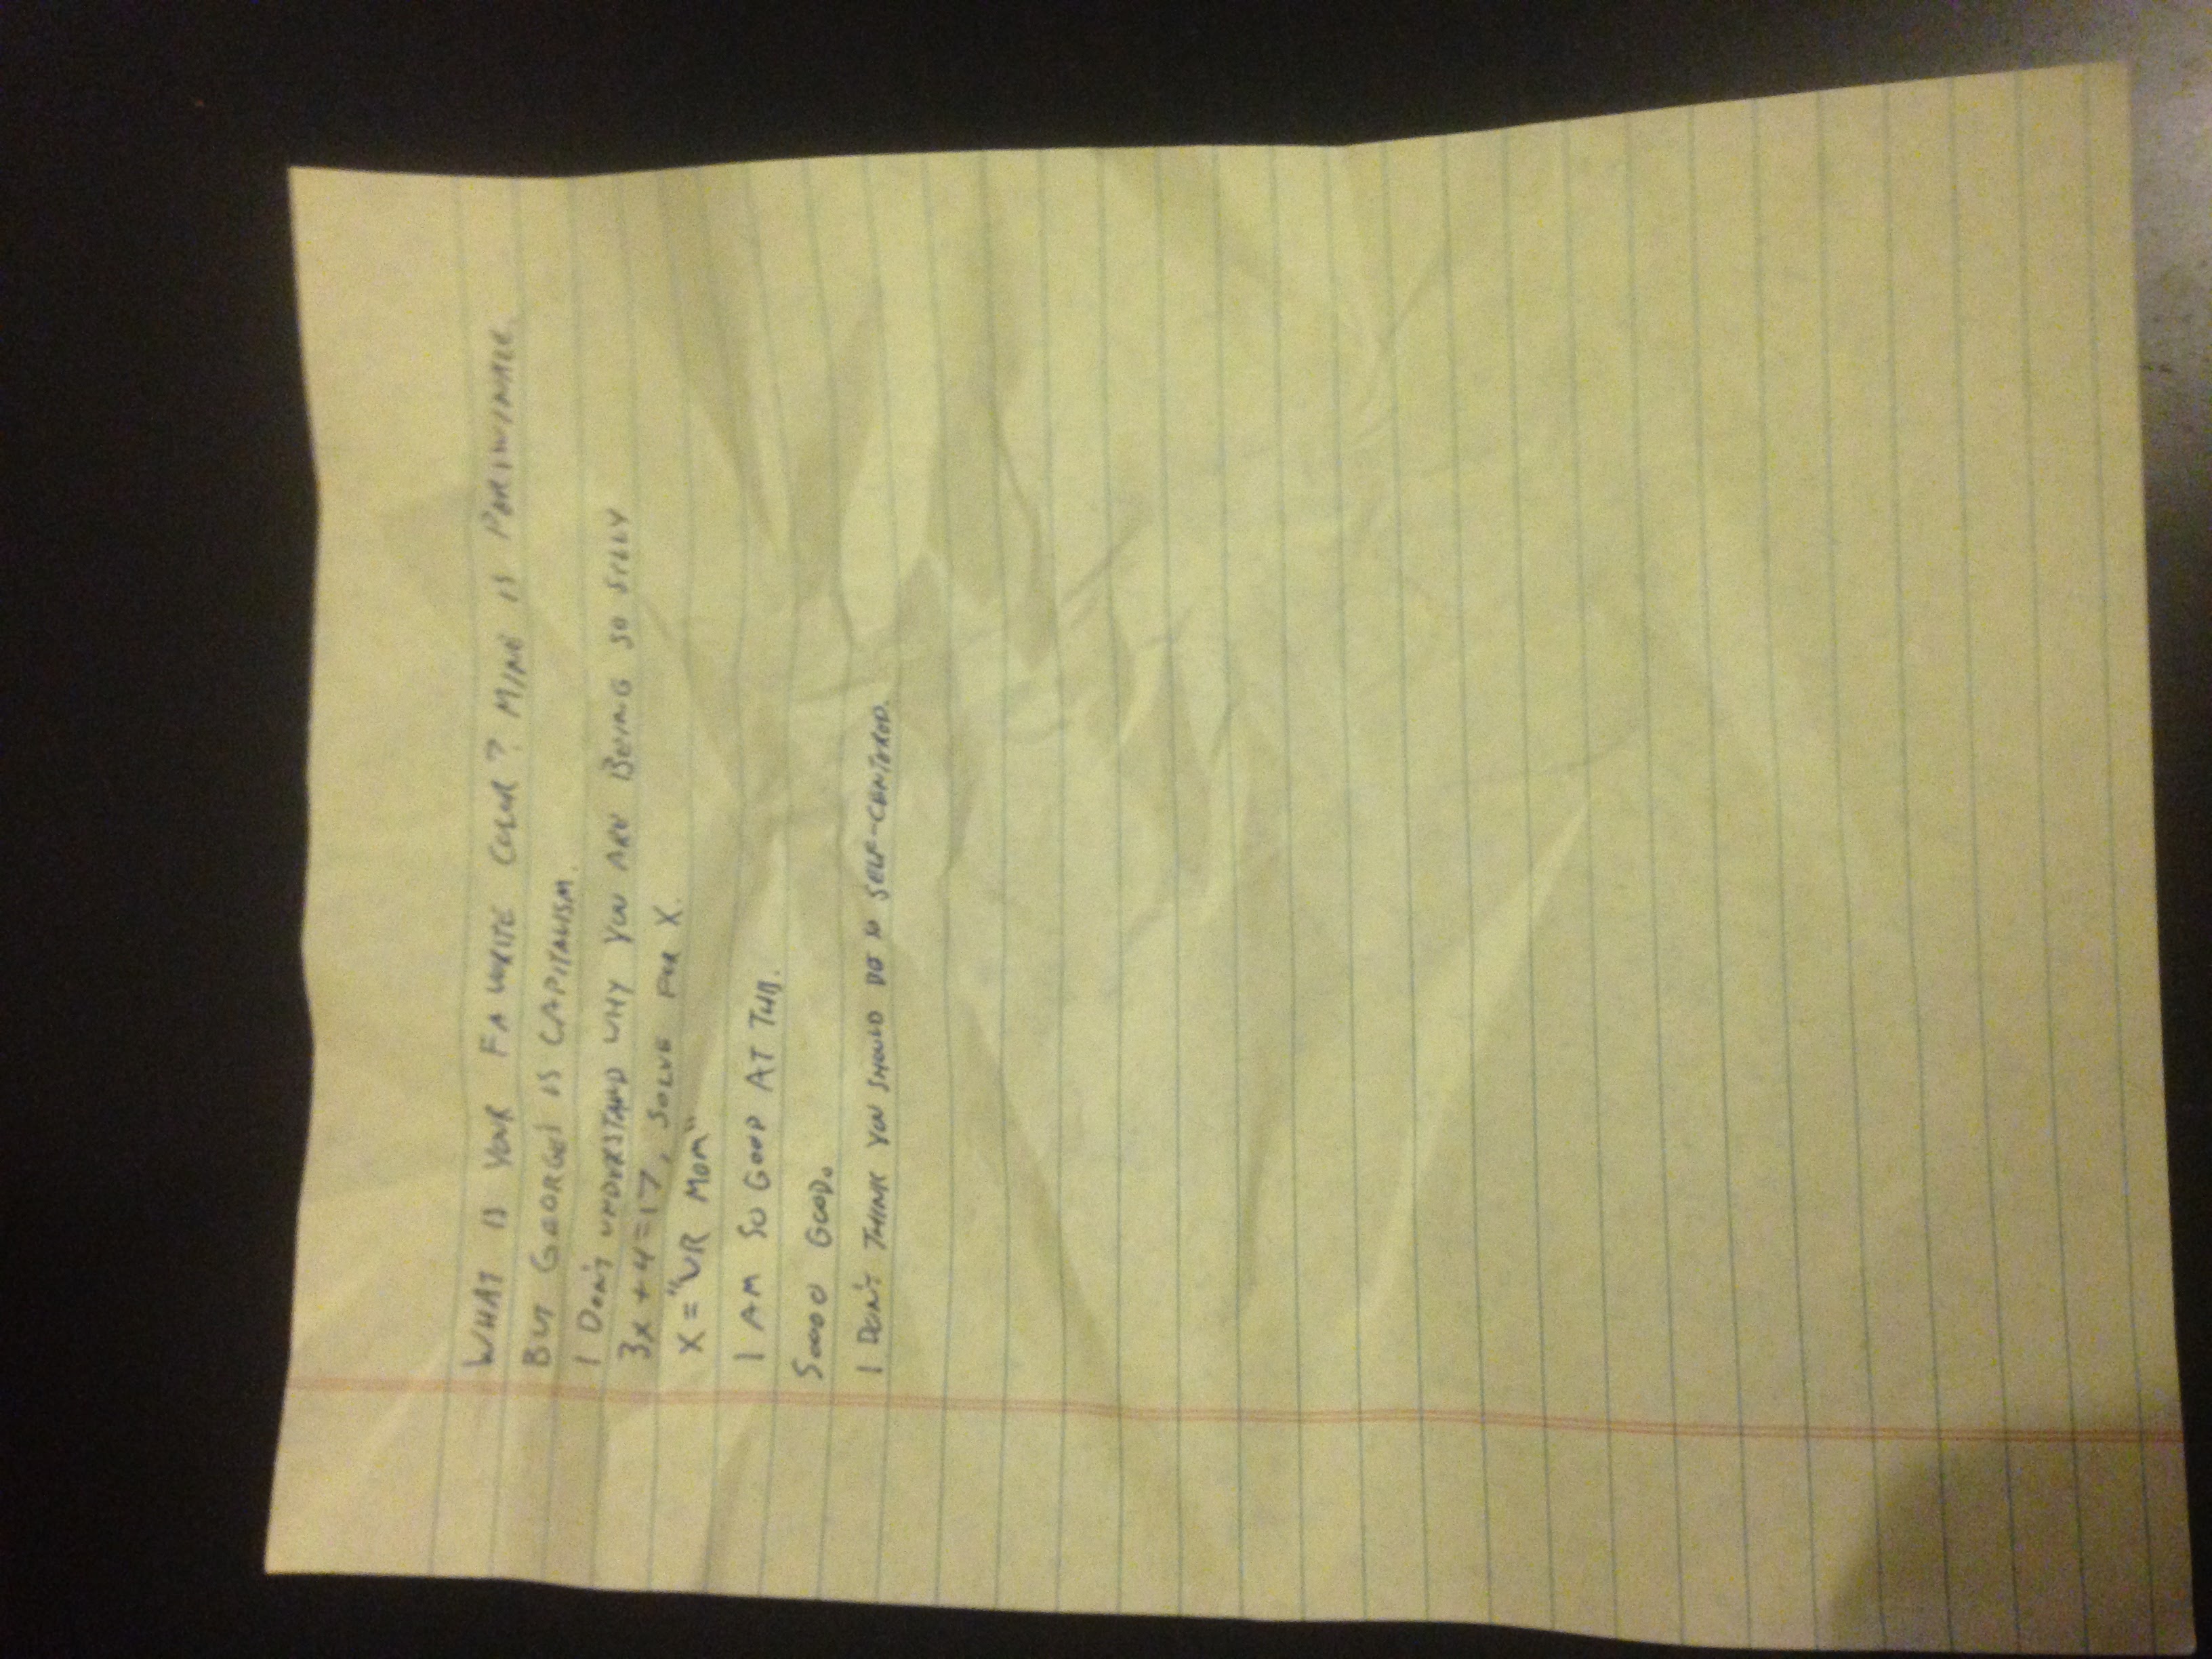 WHAT IS YOUR FAVORITE COLOR? MINE IS PERIWINKLE.
BUT GEORGE'S IS CAPITALISM.
I DON'T UNDERSTAND WHY YOU ARE BEING SO SILLY
3x+4=17, SOLVE FOR X.
X="UR MOM"
I AM SO GOOD AT THIS.
SOOOO GOOD.
I DON'T THINK YOU SHOULD BE SO SELF-CENTERED.